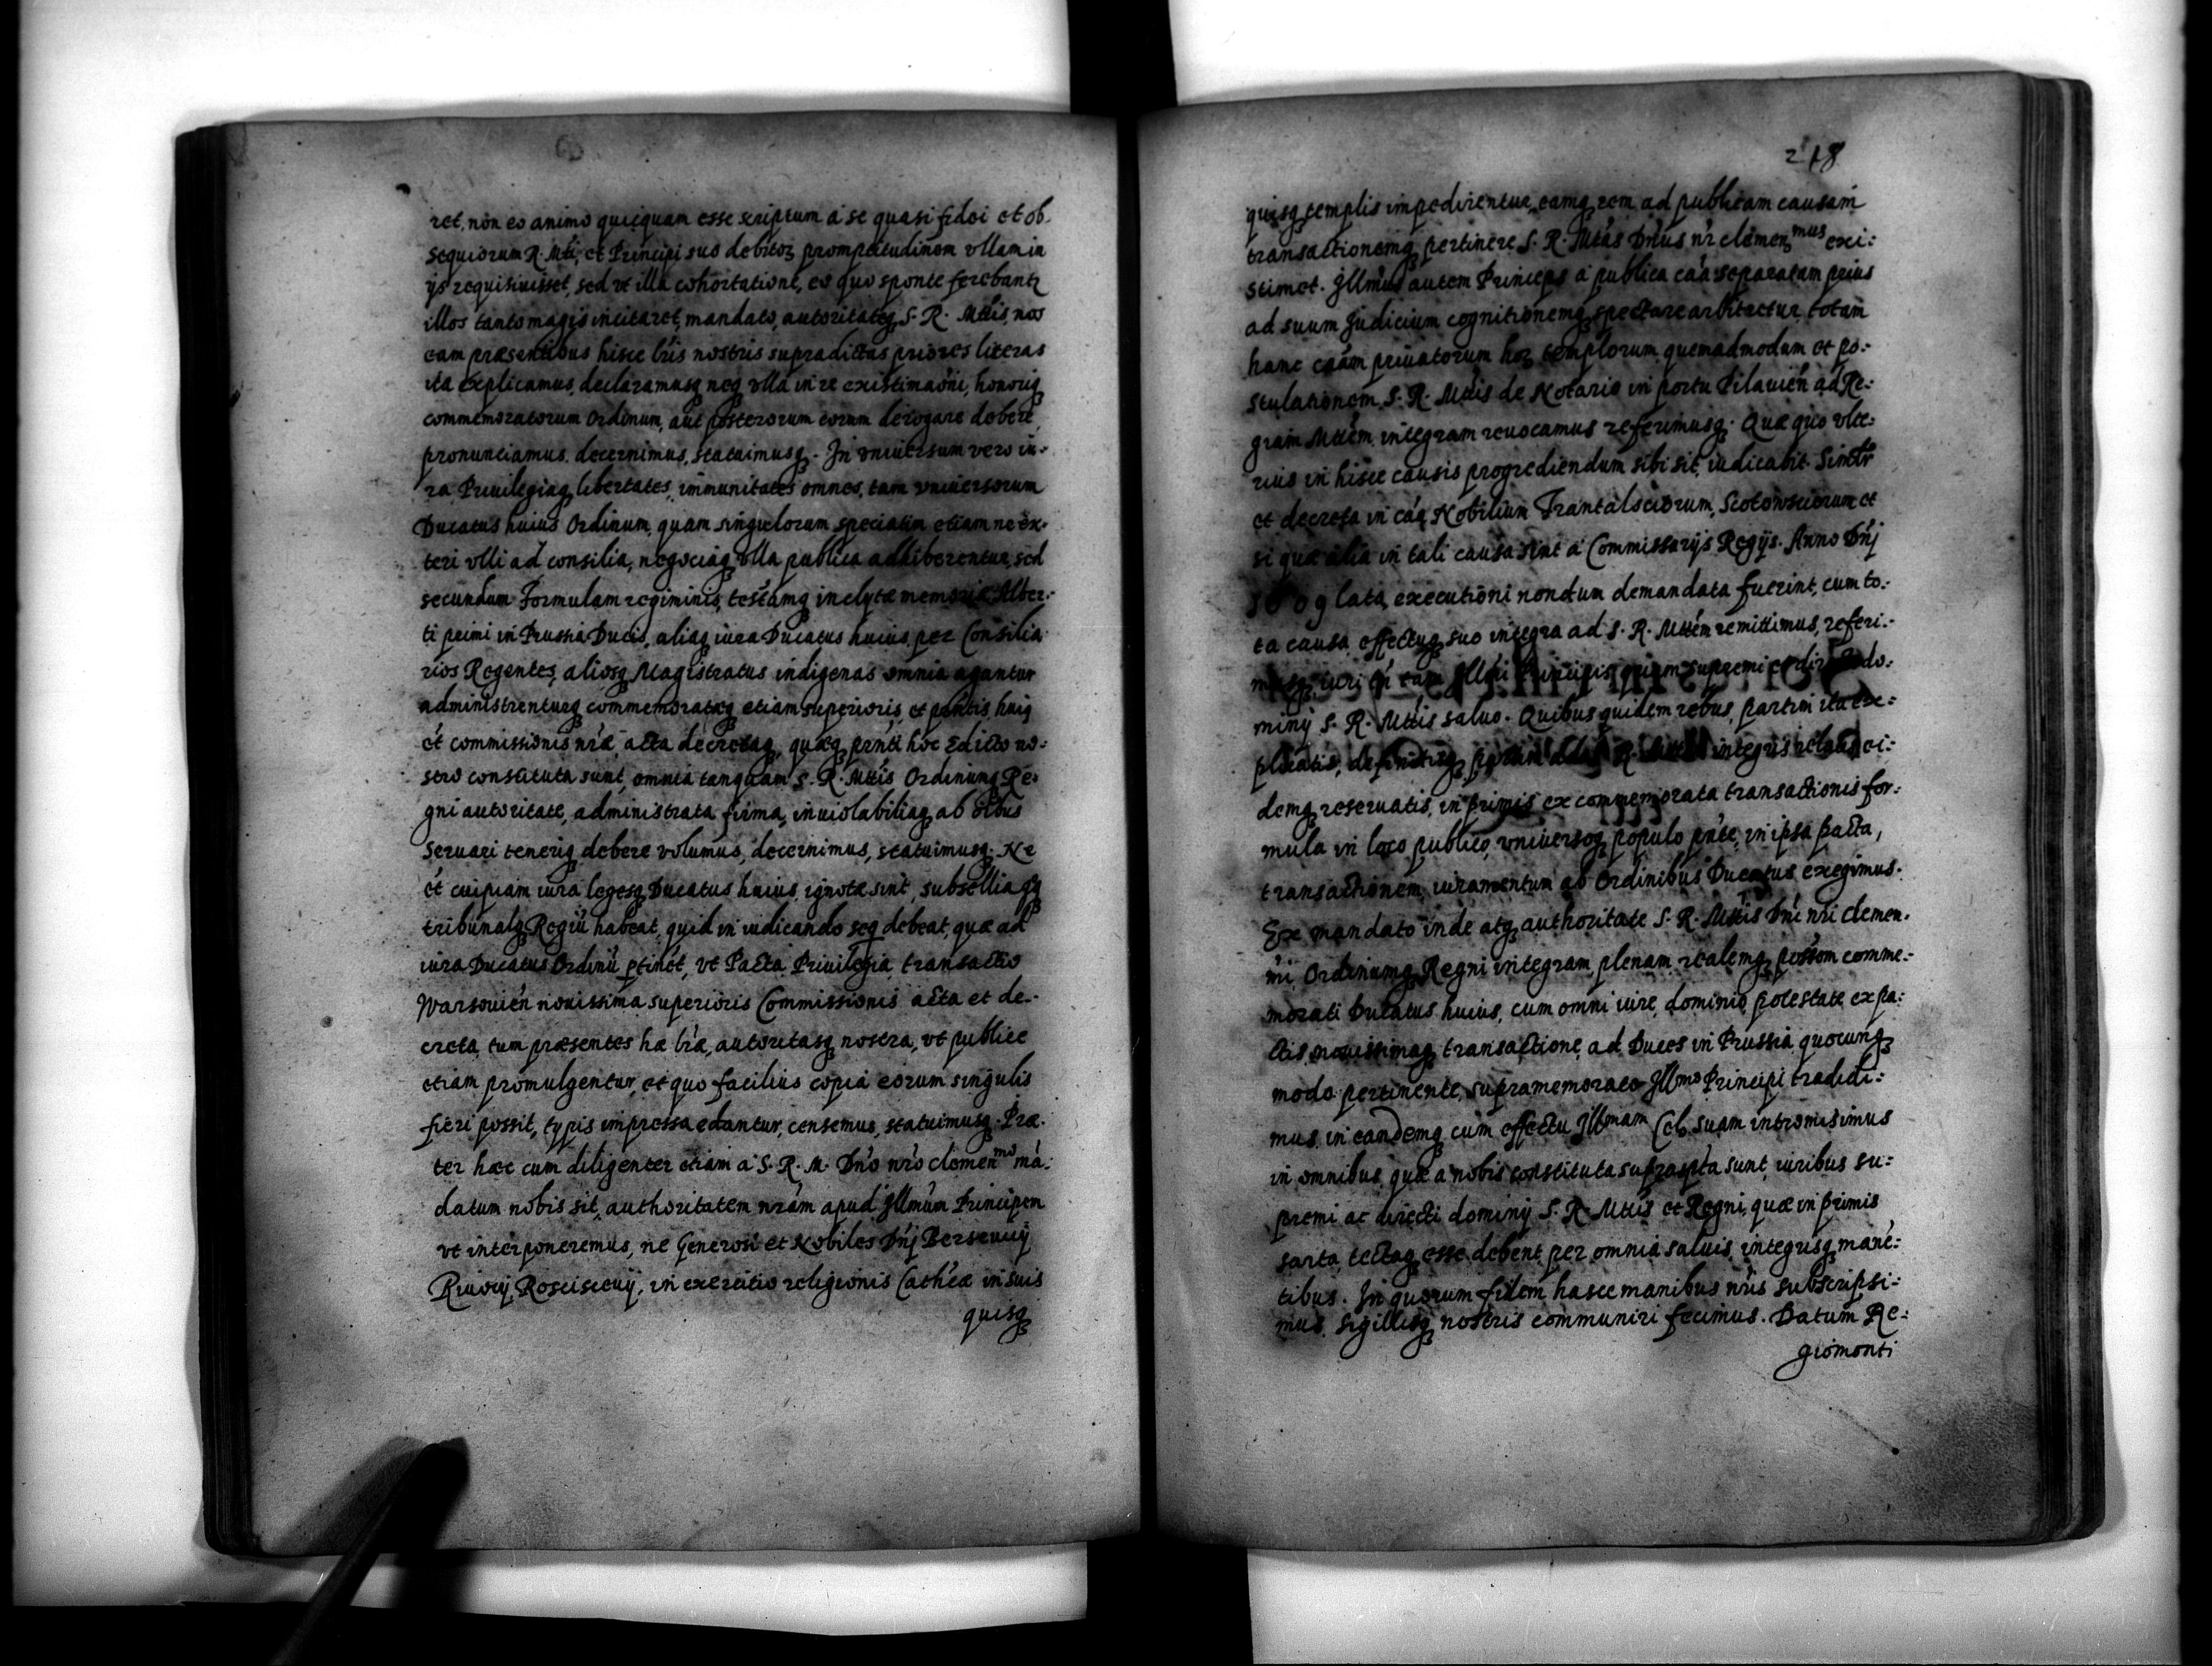 ret, non eo animo quicquam esse scriptum a se quasi fidei et ob-
sequiorum R. Mti, et Principi suo debitorz promptitudinem vllam in
ijs requisiuisset, sed vt illa cohortatione, eo quo sponte ferebantr
illos tanto magis incitaret, mandato, autoritateq S. R. Mttis, nos
eam præsentibus hisce lris nostris supradictas priores literas
ita explicamus, declaramusq neq vlla in re existimaõni, honoriq
commemoratorum Ordinum, aut posterorum eorum derogare debere
pronunciamus, decernimus, statuimusq. In vniuersum vero iu-
ra Priuilegiaq libertates, immunitates omnes, tam vniuersorum
Ducatus huius Ordinum, quam singulorum speciatim etiam ne ex-
teri vlli ad consilia, negociaq vlla publica adhiberentur, sed
secundum Formulam regiminis, testamq inclytæ memoriæ Alber-
ti primi in Prussia Ducis, aliaq iura Ducatus huius per Consilia-
rios Regentes, aliosq Magistratus indigenas omnia agantur
administrenturq commemoratæq etiam superioris, et pñtis, huiq
et commissionis nræ acta decretaq, quæq prñti hoc Edicto no-
stro constituta sunt, omnia tanquam S. R. Mttis Ordinumq Re-
gni autoritate, administrata firma, inuiolabiliaq ab oibus
seruari teneriq debere volumus, decernimus, statuimusq. Ne
et cuipiam iura legesq Ducatus huius ignotæ sint, subselliaq
tribunalq Regiũ habeat, quid in iudicando seq debeat, quæ ad
iura Ducatus Ordinũ ptinet, vt Pacta Priuilegia, transactio
Warsouień nouissima superioris Commissionis acta et de-
creta, tum præsentes hæ lræ, autoritasq nostra, vt publice
etiam promulgentur, et quo facilius copia eorum singulis
fieri possit, typis impressa edantur, censemus, statuimusq. Præ-
ter hæc cum diligenter etiam a S. R. M. Dño nro clemenmo mã-
datum nobis sit, authoritatem nram apud Illmum Principem
vt interponeremus, ne Generosi et Nobiles Dñj
in exercitio religionis Cathcæ in suis
quisq
218
quisq templis impedirentur, eamq rem ad publicam causam
transactionemq pertinere S. R. Mtas Dnus nr clemenmus exi-
stimet. Illmus autem Princeps a publica caa separatam prius
ad suum Judicium cognitionemq spectare arbitretur, totam
hanc caam priuatorum horz templorum quemadmodum et po-
stulationem S. R. Mttis de Notario in portu Pilauień ad Re-
giam Mttem integram reuocamus referimusq. Quæ quo vlte-
rius in hisce causis progrediendum sibi sit, iudicabit. Simltr
et decreta in caa Nobilium et
si quæ alia in tali causa sint a Commissarijs Regijs. Anno Dñj
lata, executioni nondum demandata fuerint, cum to-
ta causa effectuq suo integra ad S. R. Mttem remittimus, referi-
musq, iuri Principis, supremi et directi do-
minij S. R. Mttis saluo. Quibus quidem rebus, partim ita ex-
plicatis, definitisq integris rebus ei-
demq reseruatis, in primis ex commemorata transactionis for-
mula in loco publico, vniuersoq populo pñte, in ipsa pacta,
transactionem, iuramentum ab Ordinibus Ducatus exegimus.
Ex mandato inde atq authoritate S. R. Mttis Dñi nri clemen-
mi Ordinumq Regni integram, plenam realemq possom comme-
morati Ducatus huius, cum omni iure, dominio, potestate ex pa-
ctis nouissimaq transactione ad Duces in Prussia quocunq
modo pertinente, supramemorato Illmo Principi tradidi-
mus, in eandemq cum effectu Illmam Cels. suam intromisimus
in omnibus, quæ a nobis constituta suprapta sunt, iuribus su-
premi ac directi dominij S. R. Mttis et Regni, quæ in primis
sarta tectaq esse debent, per omnia saluis, integrisq manẽ-
tibus. In quorum fidem hasce manibus nris subscripsi-
mus, sigillisq nostris communiri fecimus. Datum Re-
giomonti